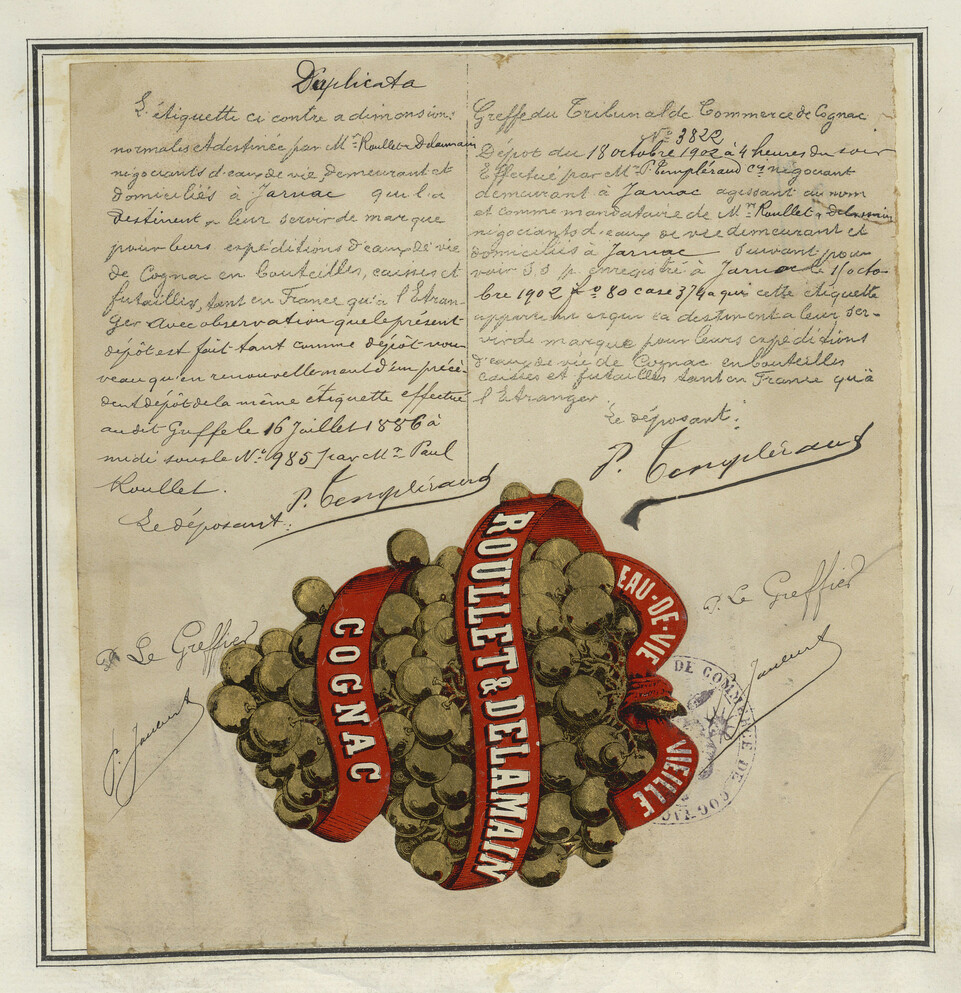 Duplicata
L'étiquette ci contre a dimensions
normales et destinée par Mrs Roullet & Delamain
négociants d'eaux de vie demeurant et
domiciliés à Jarnac qui la
destinent a leur servir de marque
pour leurs expéditions d'eaux de vie
de Cognac en bouteilles, caisses et
futailles, tant en France qu'à l'Etran-
ger avec observation que le présent
dépôt est fait tant comme dépôt nou-
veau qu'en renouvellement d'un précé-
dent dépôt de la même étiquette effectué
au dit Greffe le 16 Juillet 1886 à
midi sous le No 985 par Mr Paul
Roullet.
Le déposant:
P. Templéraud
Greffe du Tribunal de Commerce de Cognac
No 3822
Dépôt du 18 octobre 1902 à 4 heures du soir
Effectué par Mr P. Templéraud négociant
demeurant à Jarnac agissant au nom
et comme mandataire de Mrs Roullet & Delamain
négociants d'eaux de vie demeurant et
domiciliés à Jarnac Suivant pou-
voir S.S.p. enregistré à Jarnac le 1 octo-
bre 1902 fo 80 case 374 a qui cette étiquette
appartient et qui la destinent a leur ser-
vir de marque pour leurs expéditions
d'eaux de vie de Cognac en bouteilles
caisses et futailles tant en France qu'à
l'Etranger
Le déposant:
P. Templéraud
P. Le Greffier
P. Le Greffier
COGNAC
ROULLET & DELAMAIN
EAU-DE-VIE
VIEILLE
DE COMMERCE DE COGNAC